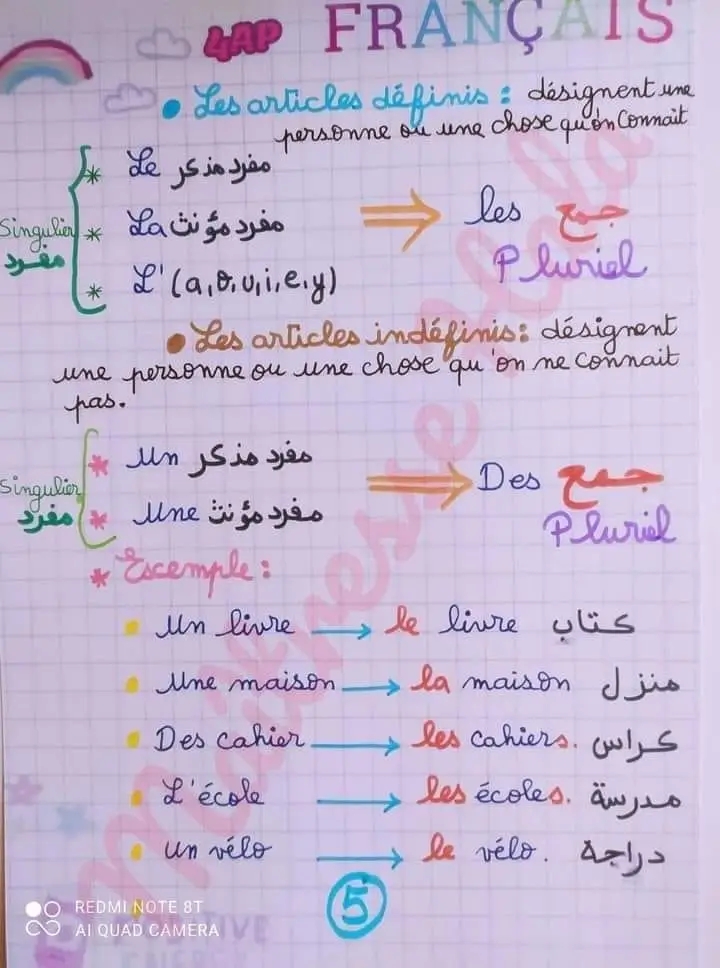 4AP FRANÇAIS
• Les articles définis : désignent une
personne ou une chose qu'on Connait
Singulier
مفرد
* Le مفرد مذكر
* La مفرد مؤنث
* L' (a,o,u,i,e,y)
⇒ les جمع
Pluriel
• Les articles indéfinis : désignent
une personne ou une chose qu'on ne connait
pas.
Singulier
مفرد
* Un مفرد مذكر
* Une مفرد مؤنث
⇒ Des جمع
Pluriel
* Excemple :
Un livre → le livre كتاب
Une maison → la maison منزل
Des cahier → les cahiers. كراس
L'école → les écoles. مدرسة
un vélo → le vélo. دراجة
5
Maitresse
REDMI NOTE 8T
AI QUAD CAMERA